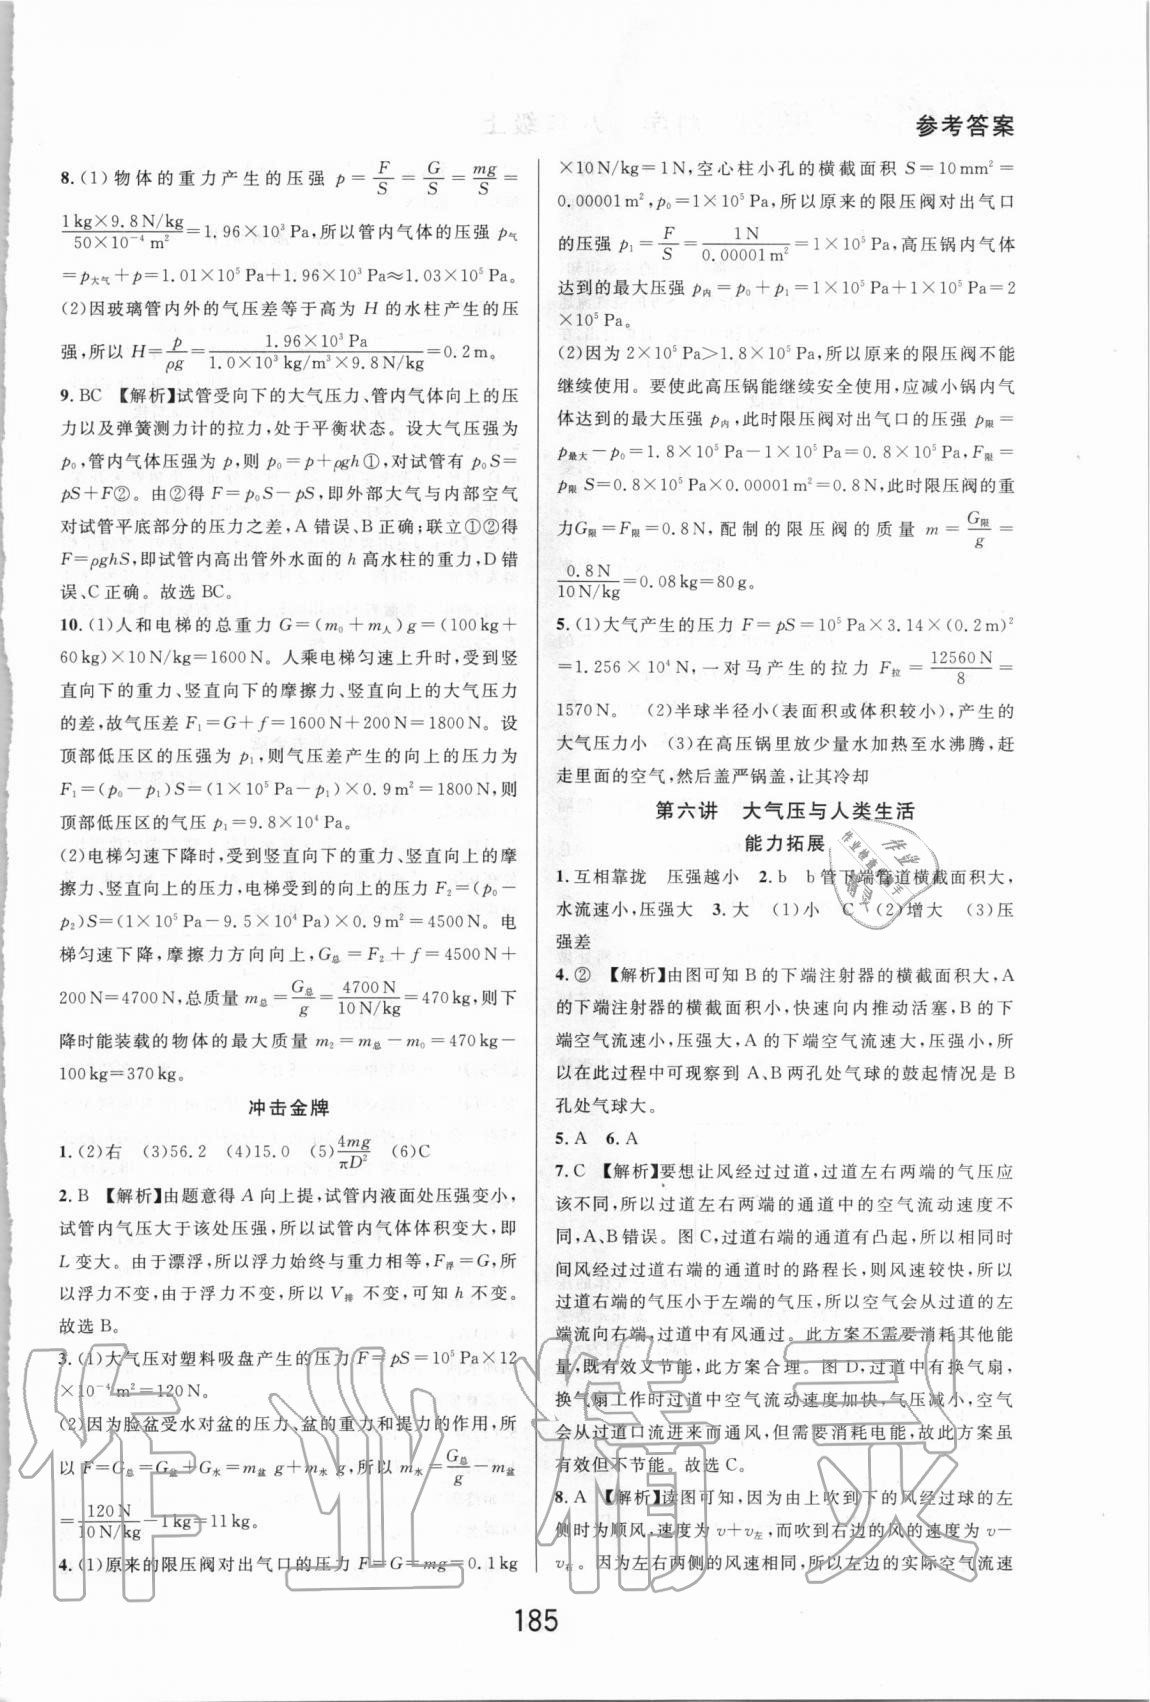 参考答案
8.(1)物体的重力产生的压强 p=F/S=G/S=mg/S=
1kg×9.8N/kg/50×10⁻⁴m²=1.96×10³Pa,所以管内气体的压强 p气
=p大气+p=1.01×10⁵Pa+1.96×10³Pa≈1.03×10⁵Pa。
(2)因玻璃管内外的气压差等于高为 H 的水柱产生的压
强,所以 H=p/ρg=1.96×10³Pa/1.0×10³kg/m³×9.8N/kg=0.2m。
9.BC 【解析】试管受向下的大气压力、管内气体向上的压
力以及弹簧测力计的拉力,处于平衡状态。设大气压强为
p₀,管内气体压强为 p,则 p₀=p+ρgh①,对试管有 p₀S=
pS+F②。由②得 F=p₀S-pS,即外部大气与内部空气
对试管平底部分的压力之差,A 错误、B 正确;联立①②得
F=ρghS,即试管内高出管外水面的 h 高水柱的重力,D 错
误、C 正确。故选 BC。
10.(1)人和电梯的总重力 G=(m₀+m人)g=(100kg+
60kg)×10N/kg=1600N。人乘电梯匀速上升时,受到竖
直向下的重力、竖直向下的摩擦力、竖直向上的大气压力
的差,故气压差 F₁=G+f=1600N+200N=1800N。设
顶部低压区的压强为 p₁,则气压差产生的向上的压力为
F₁=(p₀-p₁)S=(1×10⁵Pa-p₁)×0.9m²=1800N,则
顶部低压区的气压 p₁=9.8×10⁴Pa。
(2)电梯匀速下降时,受到竖直向下的重力、竖直向上的摩
擦力、竖直向上的压力,电梯受到的向上的压力 F₂=(p₀-
p₂)S=(1×10⁵Pa-9.5×10⁴Pa)×0.9m²=4500N。电
梯匀速下降,摩擦力方向向上,G总=F₂+f=4500N+
200N=4700N,总质量 m总=G总/g=4700N/10N/kg=470kg,则下
降时能装载的物体的最大质量 m₂=m总-m₀=470kg-
100kg=370kg。
冲击金牌
1.(2)右 (3)56.2 (4)15.0 (5)4mg/πD² (6)C
2.B 【解析】由题意得 A 向上提,试管内液面处压强变小,
试管内气压大于该处压强,所以试管内气体体积变大,即
L 变大。由于漂浮,所以浮力始终与重力相等,F浮=G,所
以浮力不变,由于浮力不变,所以 V排 不变,可知 h 不变。
故选 B。
3.(1)大气压对塑料吸盘产生的压力 F=pS=10⁵Pa×12
×10⁻⁴m²=120N。
(2)因为脸盆受水对盆的压力、盆的重力和提力的作用,所
以 F=G总=G盆+G水=m盆g+m水g,所以 m水=G总/g-m盆
=120N/10N/kg-1kg=11kg。
4.(1)原来的限压阀对出气口的压力 F=G=mg=0.1kg
×10N/kg=1N,空心柱小孔的横截面积 S=10mm²=
0.00001m²,p₀=1×10⁵Pa,所以原来的限压阀对出气口
的压强 p₁=F/S=1N/0.00001m²=1×10⁵Pa,高压锅内气体
达到的最大压强 p内=p₀+p₁=1×10⁵Pa+1×10⁵Pa=2
×10⁵Pa。
(2)因为 2×10⁵Pa>1.8×10⁵Pa,所以原来的限压阀不能
继续使用。要使此高压锅能继续安全使用,应减小锅内气
体达到的最大压强 p内,此时限压阀对出气口的压强 p限=
p最大-p₀=1.8×10⁵Pa-1×10⁵Pa=0.8×10⁵Pa,F限=
p限S=0.8×10⁵Pa×0.00001m²=0.8N,此时限压阀的重
力G限=F限=0.8N,配制的限压阀的质量 m=G限/g=
0.8N/10N/kg=0.08kg=80g。
5.(1)大气产生的压力 F=pS=10⁵Pa×3.14×(0.2m)²
=1.256×10⁴N,一对马产生的拉力 F拉=12560N/8=
1570N。 (2)半球半径小(表面积或体积较小),产生的
大气压力小 (3)在高压锅里放少量水加热至水沸腾,赶
走里面的空气,然后盖严锅盖,让其冷却
第六讲 大气压与人类生活
能力拓展
1.互相靠拢 压强越小 2.b b管下端管道横截面积大,
水流速小,压强大 3.大 (1)小 C (2)增大 (3)压
强差
4.② 【解析】由图可知 B 的下端注射器的横截面积大,A
的下端注射器的横截面积小,快速向内推动活塞,B 的下
端空气流速小,压强大,A 的下端空气流速大,压强小,所
以在此过程中可观察到 A、B 两孔处气球的鼓起情况是 B
孔处气球大。
5.A 6.A
7.C 【解析】要想让风经过过道,过道左右两端的气压应
该不同,所以过道左右两端的通道中的空气流动速度不
同,A、B 错误。图 C,过道右端的通道有凸起,所以相同时
间风经过过道右端的通道时的路程长,则风速较快,所以
过道右端的气压小于左端的气压,所以空气会从过道的左
端流向右端,过道中有风通过。此方案不需要消耗其他能
量,既有效又节能,此方案合理。图 D,过道中有换气扇,
换气扇工作时过道中空气流动速度加快,气压减小,空气
会从过道口流进来而通风,但需要消耗电能,故此方案虽
有效但不节能。故选 C。
8.A 【解析】读图可知,因为由上吹到下的风经过球的左
侧时为顺风,速度为 v+v左,而吹到右边的风的速度为 v-
v右。因为左右两侧的风速不同,所以左边的实际空气流速
185
作业精灵